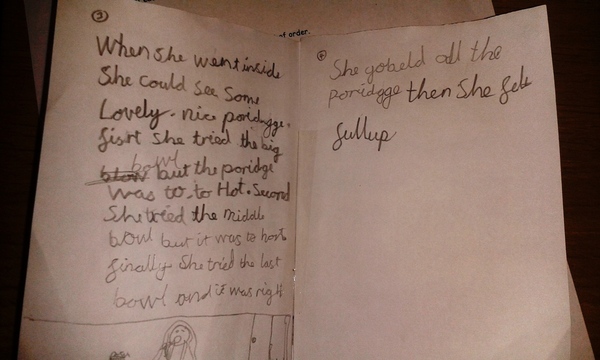 ③
When she went inside
She could see some
Lovely. nice poridgge.
fisrt she tried the big
bowl
but the poridge
was to to Hot. Second
She tried the middle
bowl but it was to
finally She tried the last
bowl and it was right
of order.
She gobeld all the
poridgge then she felt
full up